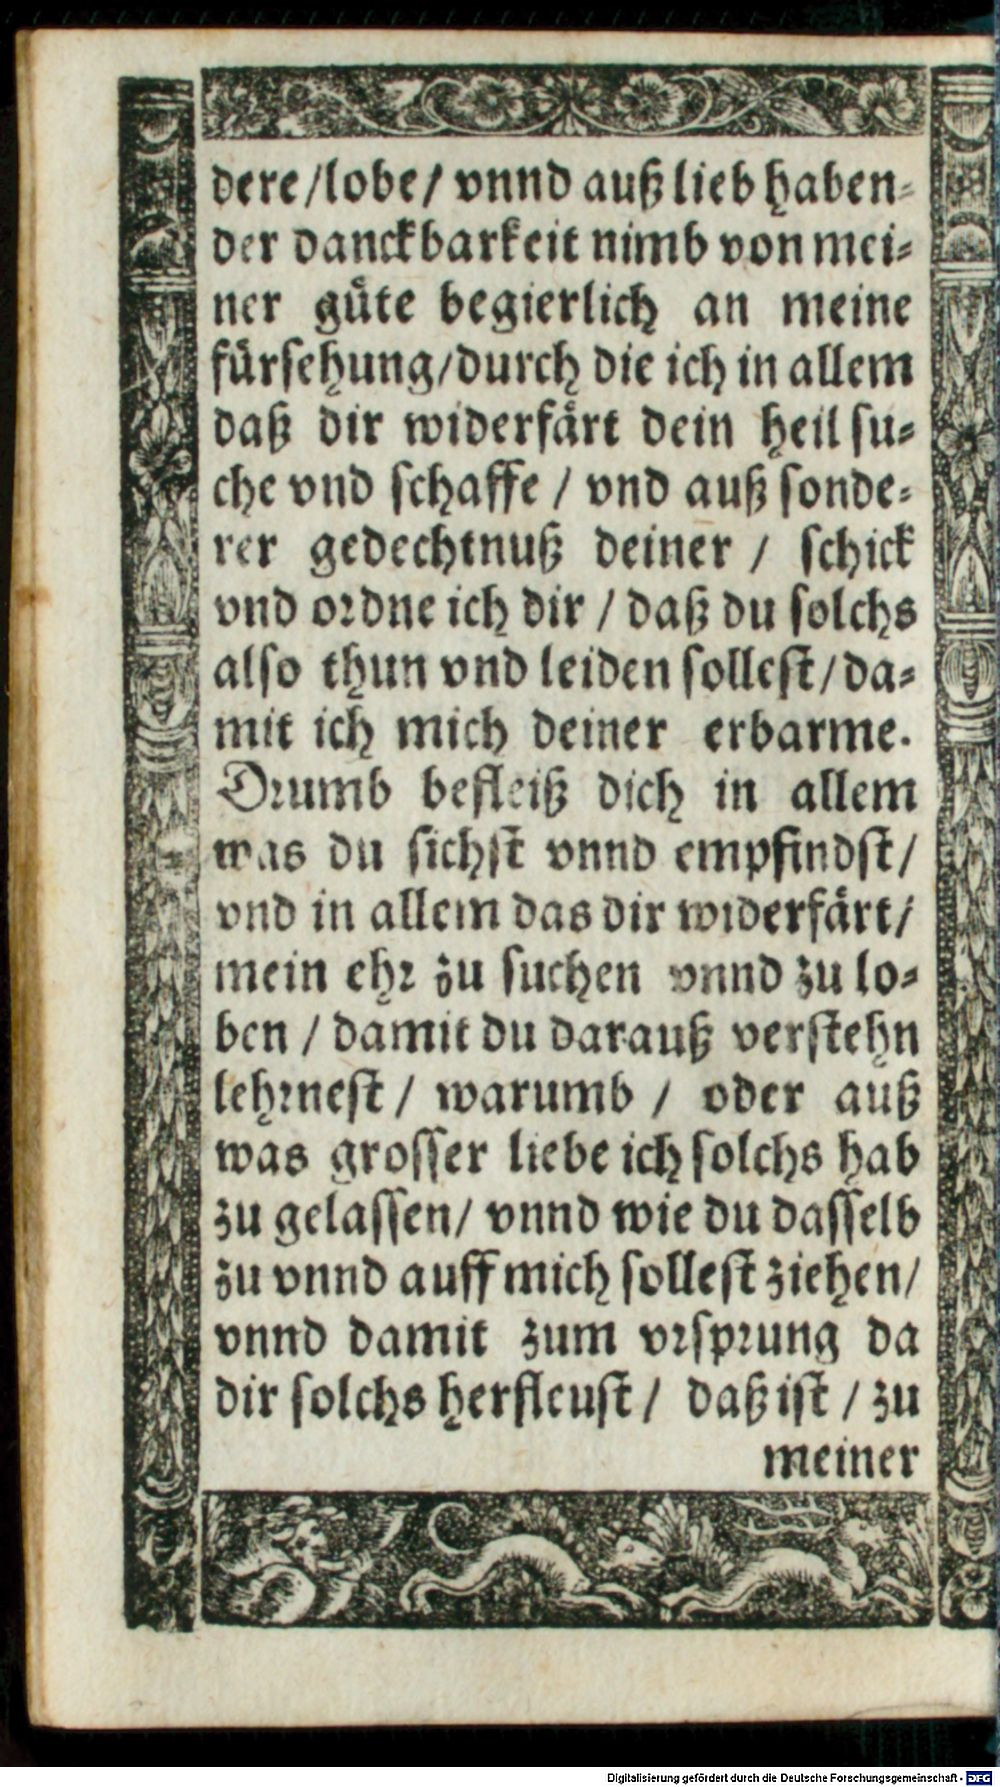 dere/lobe/ vnnd auß lieb haben-
der danckbarkeit nimb von mei-
ner güte begierlich an meine
fürsehung/durch die ich in allem
daß dir widerfärt dein heil su-
che vnd schaffe / vnd auß sonde-
rer gedechtnuß deiner / schick
vnd ordne ich dir / daß du solchs
also thun vnd leiden sollest/da-
mit ich mich deiner erbarme.
Drumb befleiß dich in allem
was du sichst vnnd empfindst/
vnd in allem das dir widerfärt/
mein ehr zu suchen vnnd zu lo-
ben / damit du darauß verstehn
lehrnest / warumb / oder auß
was grosser liebe ich solchs hab
zu gelassen/ vnnd wie du dasselb
zu vnnd auff mich sollest ziehen/
vnnd damit zum vrsprung da
dir solchs herfleust / daß ist / zu
meiner
Digitalisierung gefördert durch die Deutsche Forschungsgemeinschaft - DFG